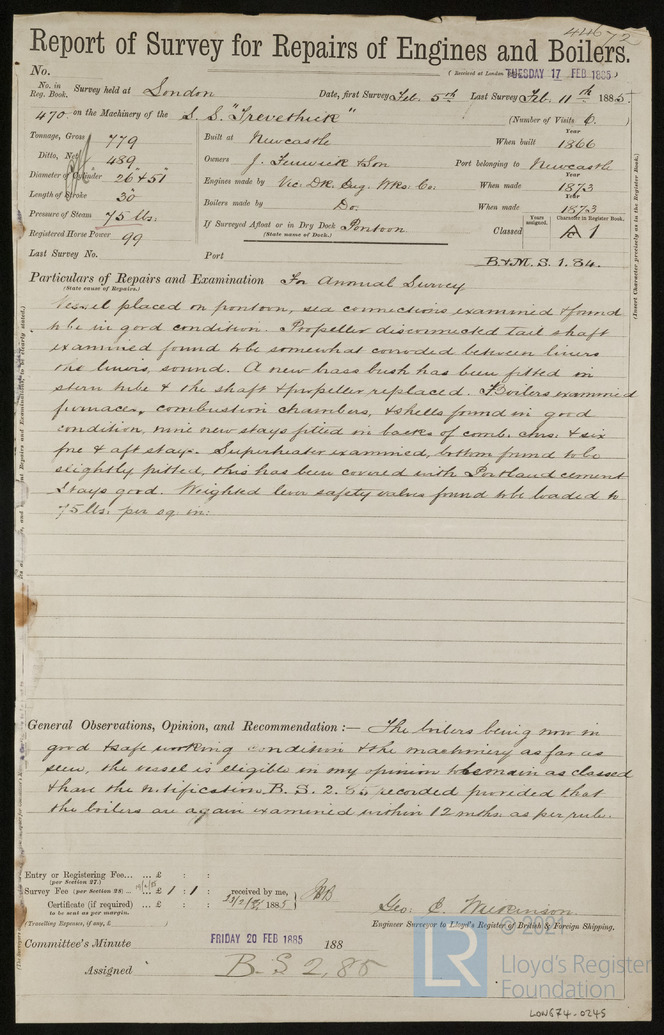 44672
Report of Survey for Repairs of Engines and Boilers.
No. (Received at London TUESDAY 17 FEB 1885)
No. in Reg. Book. Survey held at London Date, first Survey Feb. 5th Last Survey Feb. 11th 1885
470. on the Machinery of the S. S. "Trevethick" (Number of Visits 6.)
Tonnage, Gross 779
Ditto, Net 489
Diameter of Cylinder 26 & 51
Length of Stroke 30
Pressure of Steam 75 lbs.
Registered Horse Power 99
Built at Newcastle When built Year 1866
Owners J. Fenwick & Son Port belonging to Newcastle
Engines made by Vic. Dk. Eng. Wks. Co. When made Year 1873
Boilers made by Do. When made Year 1873
If Surveyed Afloat or in Dry Dock Pontoon
(State name of Dock.)
Classed Years assigned. Character in Register Book. A 1
(Insert Character precisely as in the Register Book.)
Last Survey No. Port B&M. S. 1. 84.
Particulars of Repairs and Examination For Annual Survey
(State cause of Repairs.)
Vessel placed on pontoon, sea connections examined & found
to be in good condition. Propeller disconnected tail shaft
examined found to be somewhat corroded between liners
the liners, sound. A new brass bush has been fitted in
stern tube & the shaft & propeller replaced. Boilers examined
furnaces, combustion chambers, & shells found in good
condition, nine new stays fitted in backs of comb. chrs. & six
fore & aft stays. Superheater examined, bottom found to be
slightly pitted, this has been covered with Portland cement
Stays good. Weighted lever safety valves found to be loaded to
75 lbs. per sq. in:
General Observations, Opinion, and Recommendation :— The boilers being now in
good & safe working condition & the machinery as far as
seen, the vessel is eligible in my opinion to remain as classed
& have the notification B. S. 2. 85 recorded provided that
the boilers are again examined within 12 mths. as per rule.
Entry or Registering Fee... ... £ : :
(per Section 27.)
Survey Fee (per Section 28) ... £ 1 : 1 : received by me,
Certificate (if required) ... £ : : 1885
to be sent as per margin.
(Travelling Expenses, if any, £ )
Geo: E. Wilkinson.
Engineer Surveyor to Lloyd's Register of British & Foreign Shipping.
Committee's Minute FRIDAY 20 FEB 1885 188
Assigned B. S 2, 85
© 2021
LR
Lloyd's Register
Foundation
LON674-0245